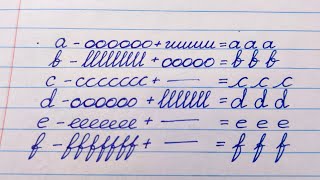 a - oooooo + ιιιιιιι = a a a
b - lllllllll + ooooo = b b b
c - ccccccc + — = c c c
d - oooooo + lllllll = d d d
e - eeeeeee + — = e e e
f - fffffff + — = f f f